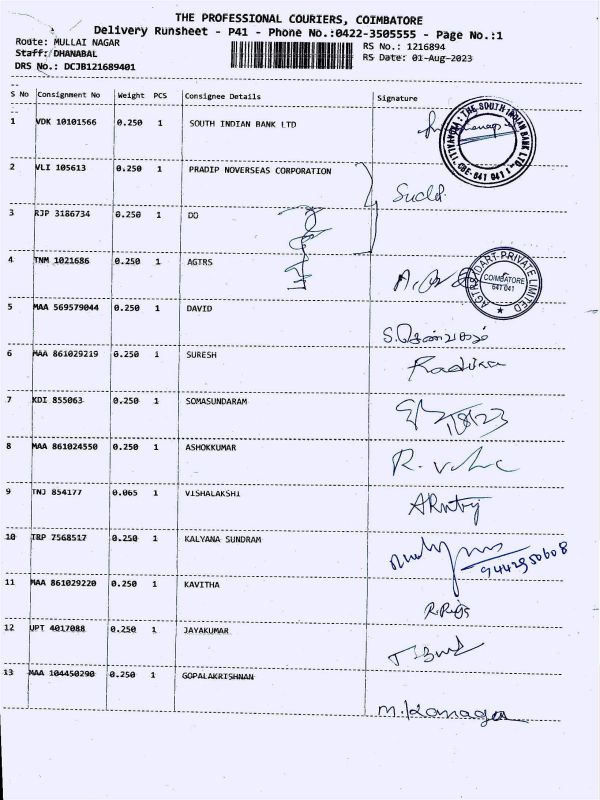 THE PROFESSIONAL COURIERS, COIMBATORE
Delivery Runsheet - P41 - Phone No.:0422-3505555 - Page No.:1
Route: MULLAI NAGAR RS No.: 1216894
Staff: DHANABAL RS Date: 01-Aug-2023
DRS No.: DCJB121689401
S No Consignment No Weight PCS Consignee Details Signature
1 VDK 10101566 0.250 1 SOUTH INDIAN BANK LTD
THE SOUTH INDIAN BANK LTD. CBE-641 041
2 VLI 105613 0.250 1 PRADIP NOVERSEAS CORPORATION
3 RJP 3186734 0.250 1 DO
4 TNM 1021686 0.250 1 AGTRS
PRIVATE LIMITED COIMBATORE 641 041
5 MAA 569579044 0.250 1 DAVID
6 MAA 861029219 0.250 1 SURESH
7 KDI 855063 0.250 1 SOMASUNDARAM
1/8/23
8 MAA 861024550 0.250 1 ASHOKKUMAR
9 TNJ 854177 0.065 1 VISHALAKSHI
10 TRP 7568517 0.250 1 KALYANA SUNDRAM
9442950608
11 MAA 861029220 0.250 1 KAVITHA
12 UPT 4017088 0.250 1 JAYAKUMAR
13 MAA 104450290 0.250 1 GOPALAKRISHNAN